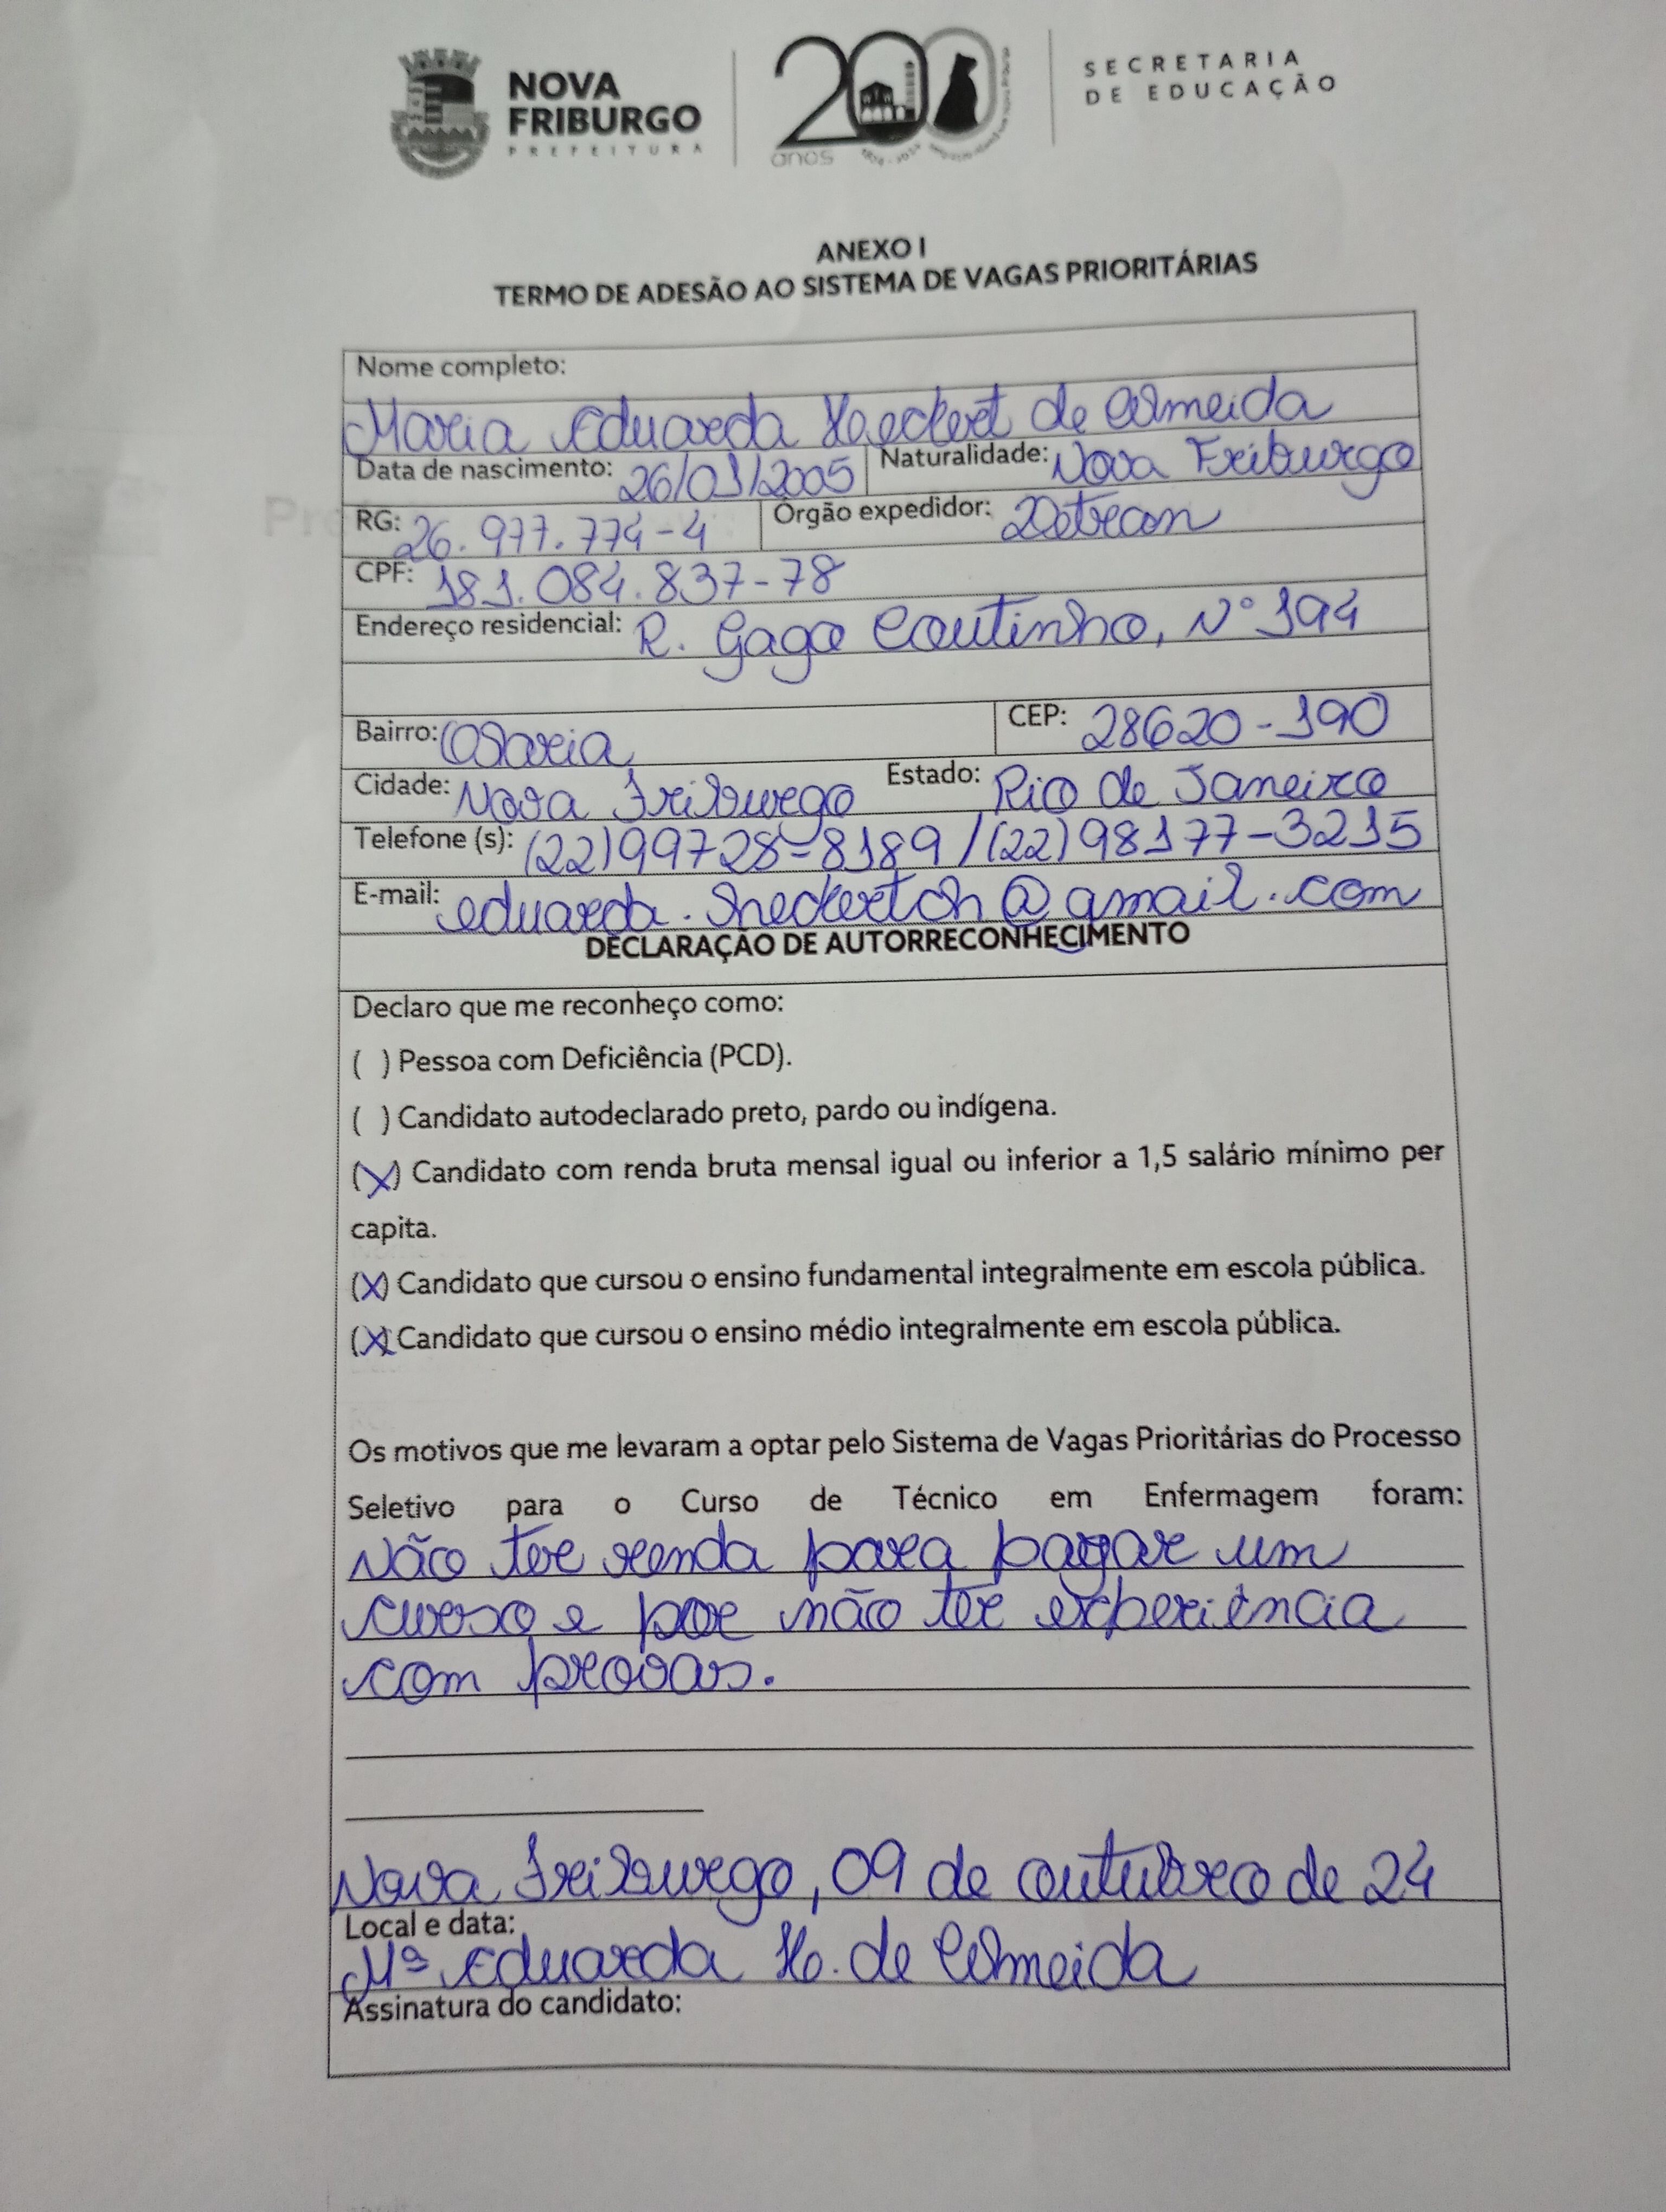 NOVA
FRIBURGO
PREFEITURA
200
anos
SECRETARIA
DE EDUCAÇÃO
ANEXO I
TERMO DE ADESÃO AO SISTEMA DE VAGAS PRIORITÁRIAS
Nome completo:
Maria Eduarda Heckert de Almeida
Data de nascimento: 26/01/2005 Naturalidade: Nova Friburgo
RG: 26.977.774-4 Órgão expedidor: Detran
CPF: 181.084.837-78
Endereço residencial: R. Gago Coutinho, Nº 194
Bairro: Olaria CEP: 28620-190
Cidade: Nova Friburgo Estado: Rio de Janeiro
Telefone (s): (22)99728-8189 / (22)98177-3215
E-mail: eduarda.heckertoh@gmail.com
DECLARAÇÃO DE AUTORRECONHECIMENTO
Declaro que me reconheço como:
( ) Pessoa com Deficiência (PCD).
( ) Candidato autodeclarado preto, pardo ou indígena.
(X) Candidato com renda bruta mensal igual ou inferior a 1,5 salário mínimo per
capita.
(X) Candidato que cursou o ensino fundamental integralmente em escola pública.
(X) Candidato que cursou o ensino médio integralmente em escola pública.
Os motivos que me levaram a optar pelo Sistema de Vagas Prioritárias do Processo
Seletivo para o Curso de Técnico em Enfermagem foram:
Não ter renda para pagar um
curso e por não ter experiência
com provas.
Nova Friburgo, 09 de outubro de 24
Local e data:
Mª Eduarda H. de Almeida
Assinatura do candidato: